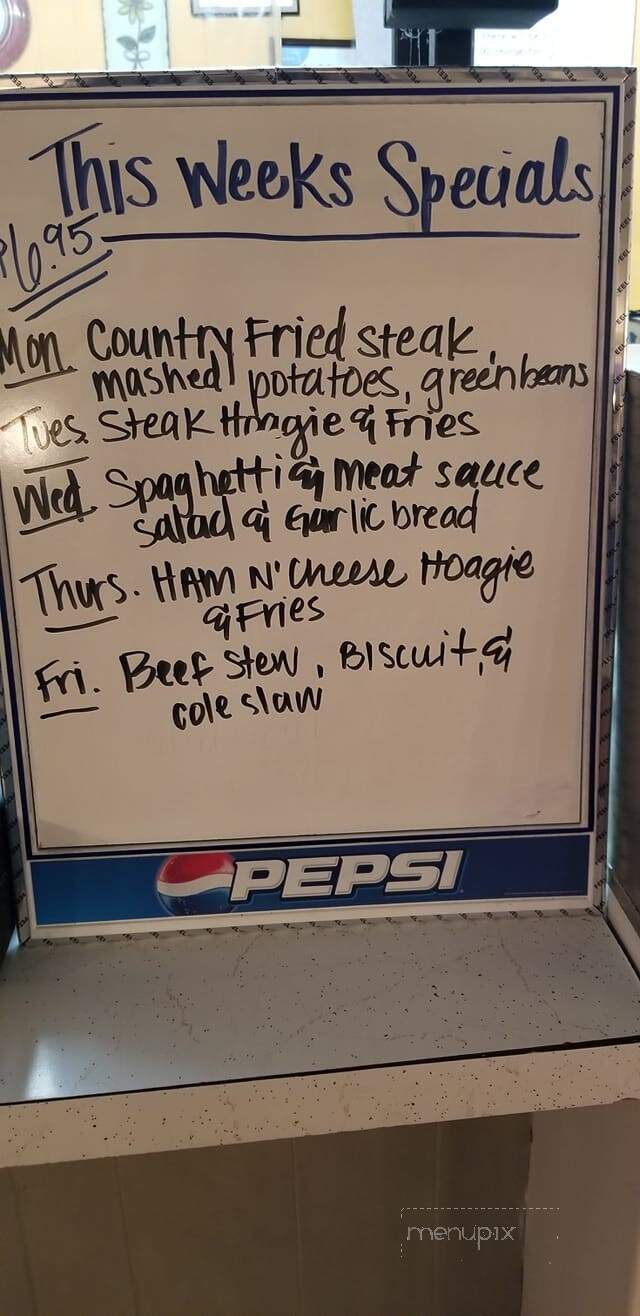 This Weeks Specials
$6.95
Mon. Country Fried steak,
mashed potatoes, greenbeans
Tues. Steak Hoagie & Fries
Wed. Spaghetti & meat sauce
salad & Garlic bread
Thurs. HAM N' Cheese Hoagie
& Fries
Fri. Beef Stew, Biscuit, &
cole slaw
PEPSI
menupix